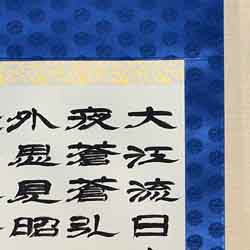 大江流日
夜蒼蒼引
外㬎見昭